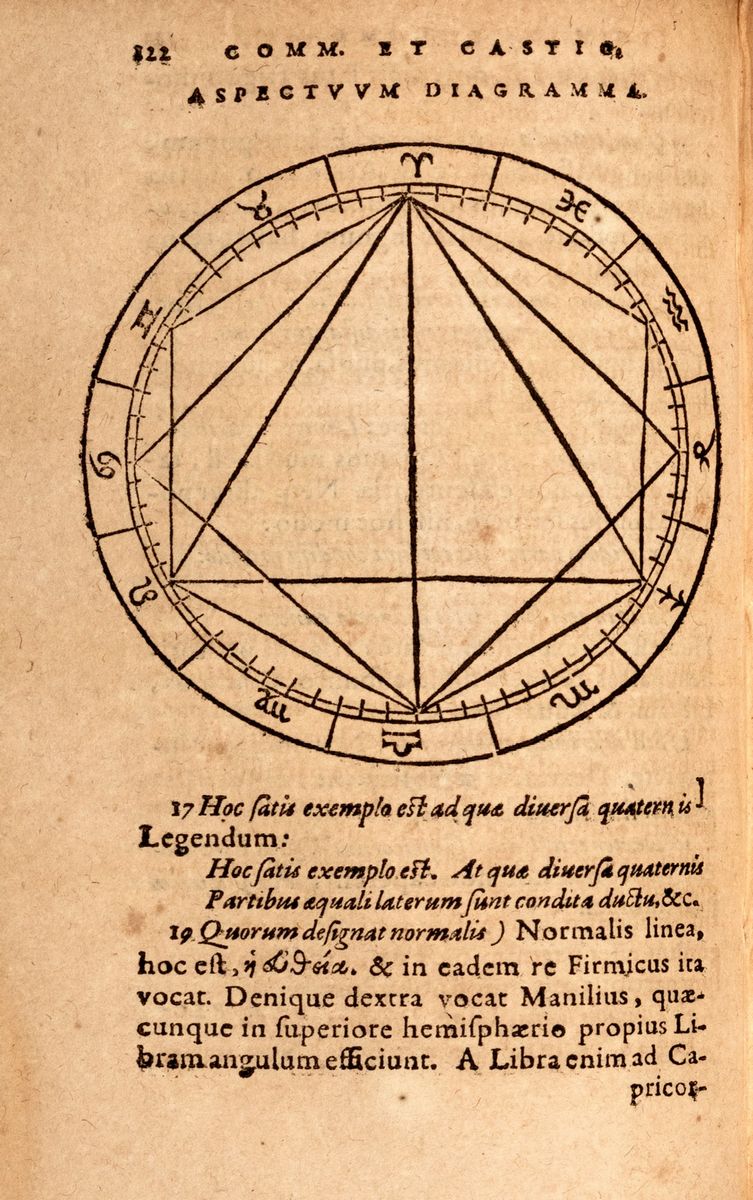 122 COMM. ET CASTIG.
ASPECTVVM DIAGRAMMA.
♈
♉
♓
♊
♒
♋
♑
♌
♐
♍
♏
♎
17 Hoc ſatis exemplo eſt ad quæ diuerſa quaternis]
Legendum:
Hoc ſatis exemplo eſt. At quæ diuerſa quaternis
Partibus æquali laterum ſunt condita ductu, &c.
19 Quorum deſignat normalis) Normalis linea,
hoc eſt, ἡ & in eadem re Firmicus ita
vocat. Denique dextra vocat Manilius, quæ-
cunque in ſuperiore hemiſphærio propius Li-
bram angulum efficiunt. A Libra enim ad Ca-
pricor-